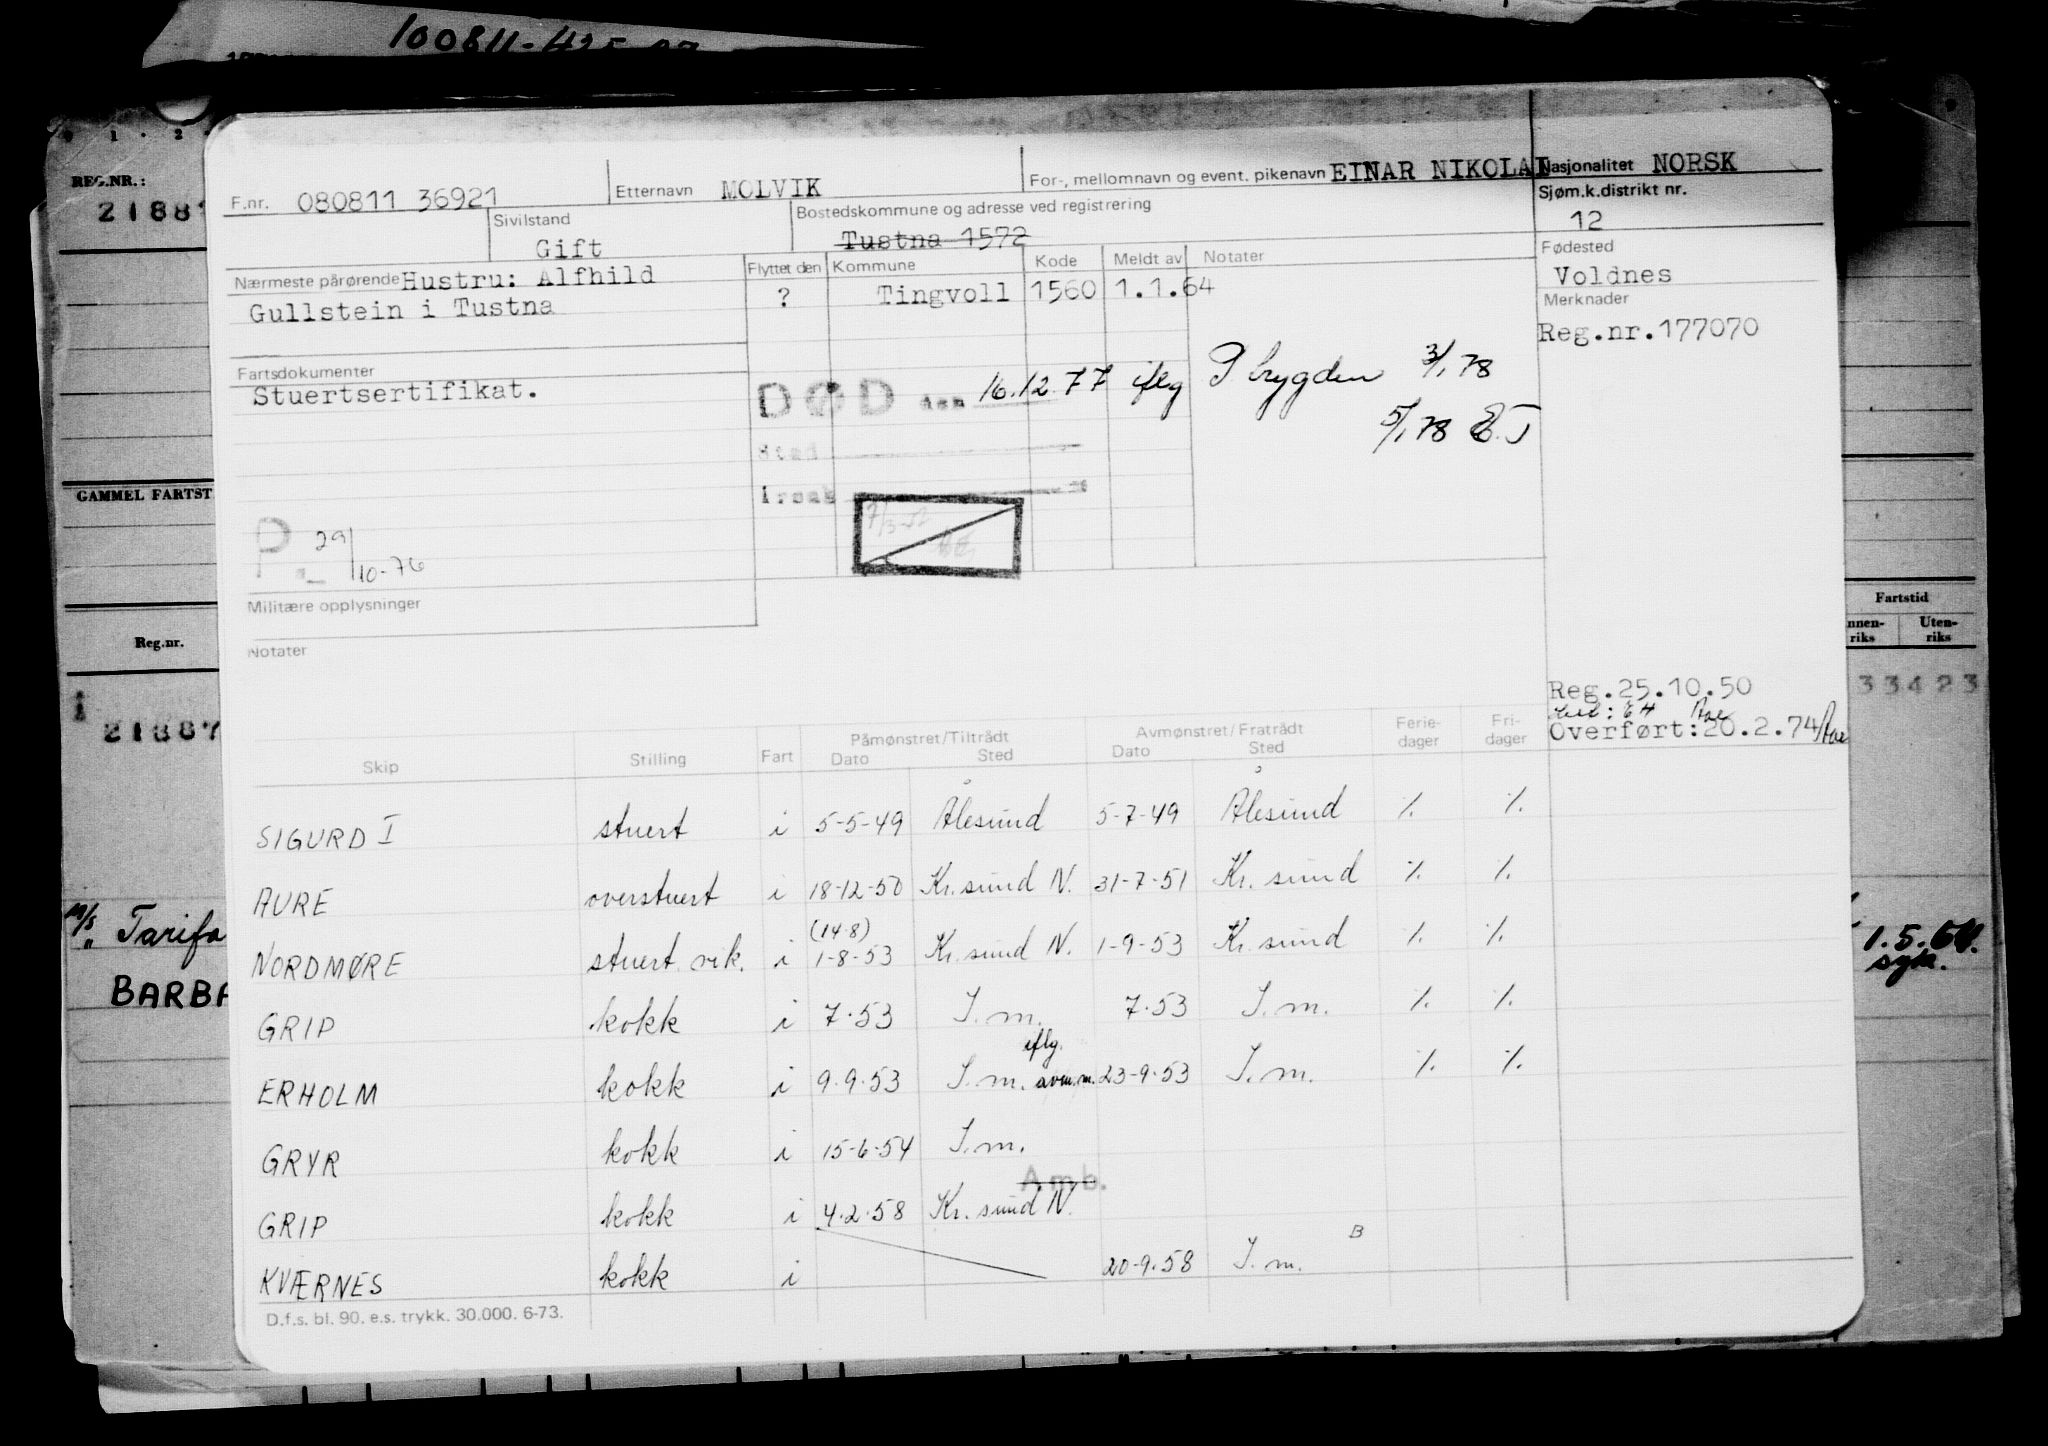 100811-425
REG.NR.:
21887
F.nr. 080811 36921 Etternavn MOLVIK For-, mellomnavn og event. pikenavn EINAR NIKOLAI Nasjonalitet NORSK
Sivilstand Gift Bostedskommune og adresse ved registrering Tustna 1572 Sjøm.k.distrikt nr. 12
Nærmeste pårørende Hustru: Alfhild
Gullstein i Tustna
Flyttet den Kommune Kode Meldt av Notater
? Tingvoll 1560 1.1.64
Fødested
Voldnes
Merknader
Reg.nr.177070
Fartsdokumenter
Stuertsertifikat.
DØD den 16.12.77 iflg P bygden 3/1 78
5/1 78
Sted
Årsak
7/3-52
P. 29/10-76
GAMMEL FARTST
Militære opplysninger
Notater
Reg.nr.
Fartstid
nnen-riks Uten-riks
21887
33423
Reg.25.10.50
Overført:20.2.74
Skip Stilling Fart Påmønstret/Tiltrådt Dato Sted Avmønstret/Fratrådt Dato Sted Ferie-dager Fri-dager
SIGURD I stuert i 5-5-49 Ålesund 5-7-49 Ålesund ٪. ٪.
AURE overstuert i 18-12-50 Kr.sund N. 31-7-51 Kr. sund ٪. ٪.
(14-8)
NORDMØRE stuert vik. i 1-8-53 Kr. sund N. 1-9-53 Kr. sund ٪. ٪.
GRIP kokk i 7.53 I.m. 7.53 I.m. ٪. ٪.
iflg.
ERHOLM kokk i 9.9.53 I.m. avm.m. 23-9.53 I.m. ٪. ٪.
GRYR kokk i 15-6-54 I.m.
Amb.
GRIP kokk i 4.2.58 Kr. sund N.
KVÆRNES kokk i 20-9.58 I.m. B
D.f.s. bl. 90. e.s. trykk. 30.000. 6-73.
M/S Tarifa
" BARBA
1.5.64.
syk.